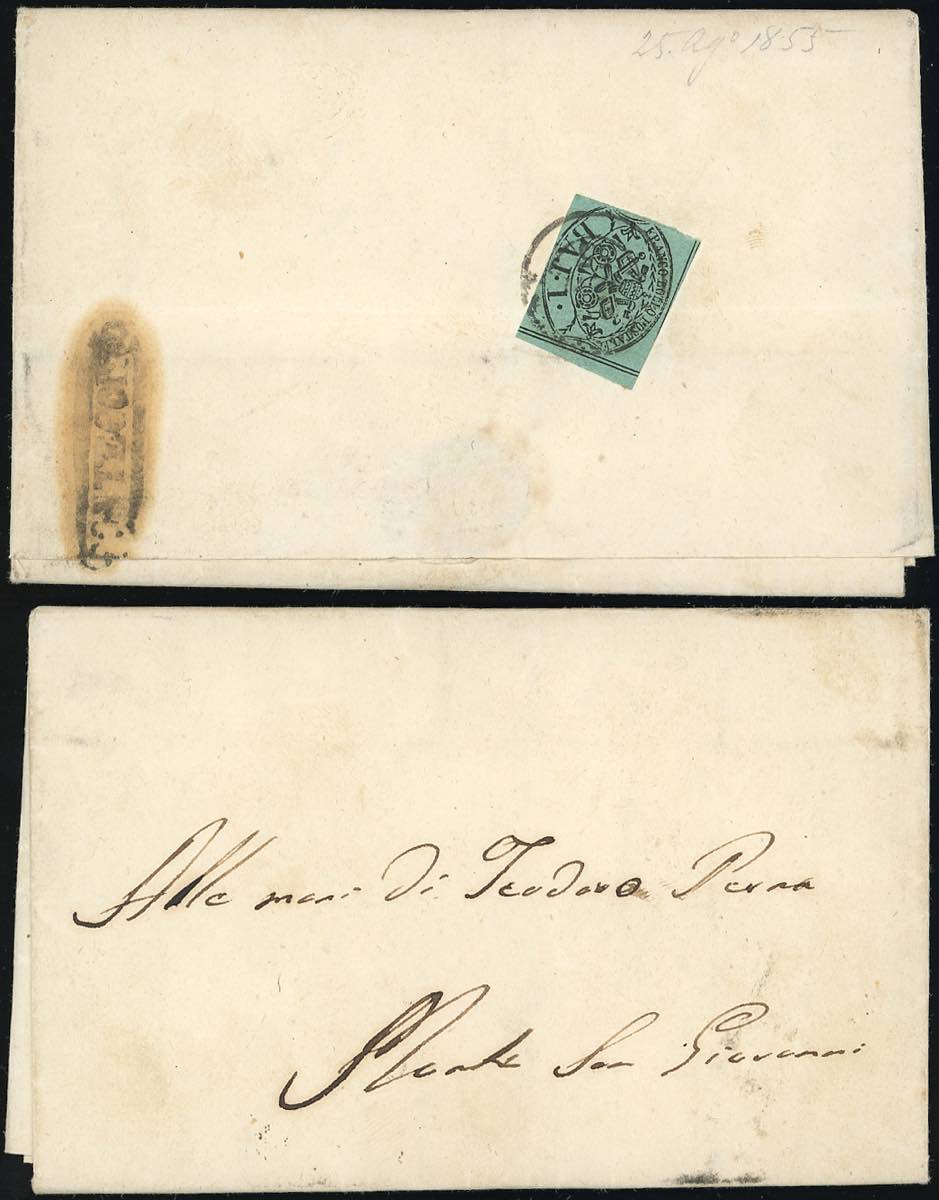 25. Ago 1855
FRANCO BOLLO POSTALE
BAI: 1.
Alle mani di Teodoro Perna
Monte San Giovanni